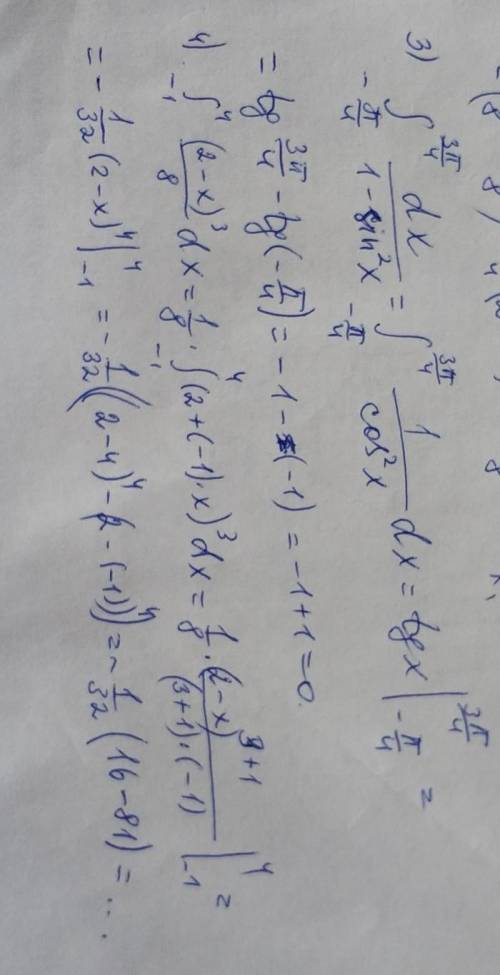 3) ∫_{-π/4}^{3π/4} dx/(1-sin²x) = ∫_{-π/4}^{3π/4} 1/cos²x dx = tg x |_{-π/4}^{3π/4} =
= tg 3π/4 - tg(-π/4) = -1 - (-1) = -1+1=0.
4) ∫_{-1}^{4} (2-x)³/8 dx = 1/8 · ∫_{-1}^{4} (2+(-1)·x)³ dx = 1/8 · (2-x)^{3+1}/((3+1)·(-1)) |_{-1}^{4} =
= -1/32 (2-x)⁴ |_{-1}^{4} = -1/32 ((2-4)⁴ - (2-(-1))⁴) = -1/32 (16-81) = ...